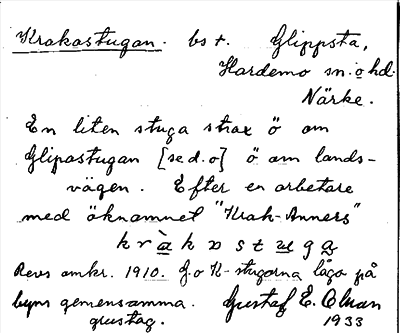 Krakastugan. bst. Glippsta,
Hardemo sn. o hd.
Närke.
En liten stuga strax ö om
Glipastugan [se d. o] ö om lands-
vägen. Efter en arbetare
med öknamnet "Krak-Anners"
k r à k ɒ s t u g a
Revs omkr. 1910. G. o K-stugorna lågo på
byns gemensamma. Gustaf E. Olman
grustag. 1933